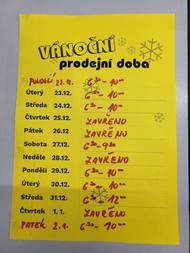 VÁNOČNÍ
prodejní doba
PONDĚLÍ 22.12. 6³⁰-10⁰⁰
Úterý 23.12. 6³⁰-10⁰⁰
Středa 24.12. 6³⁰-10⁰⁰
Čtvrtek 25.12. ZAVŘENO
Pátek 26.12 ZAVŘENO
Sobota 27.12. 6³⁰-9³⁰
Neděle 28.12. ZAVŘENO
Pondělí 29.12. 6³⁰-10⁰⁰
Úterý 30.12. 6³⁰-10⁰⁰
Středa 31.12. 6³⁰-12⁰⁰
Čtvrtek 1.1. ZAVŘENO
PÁTEK 2.1. 6³⁰-10⁰⁰